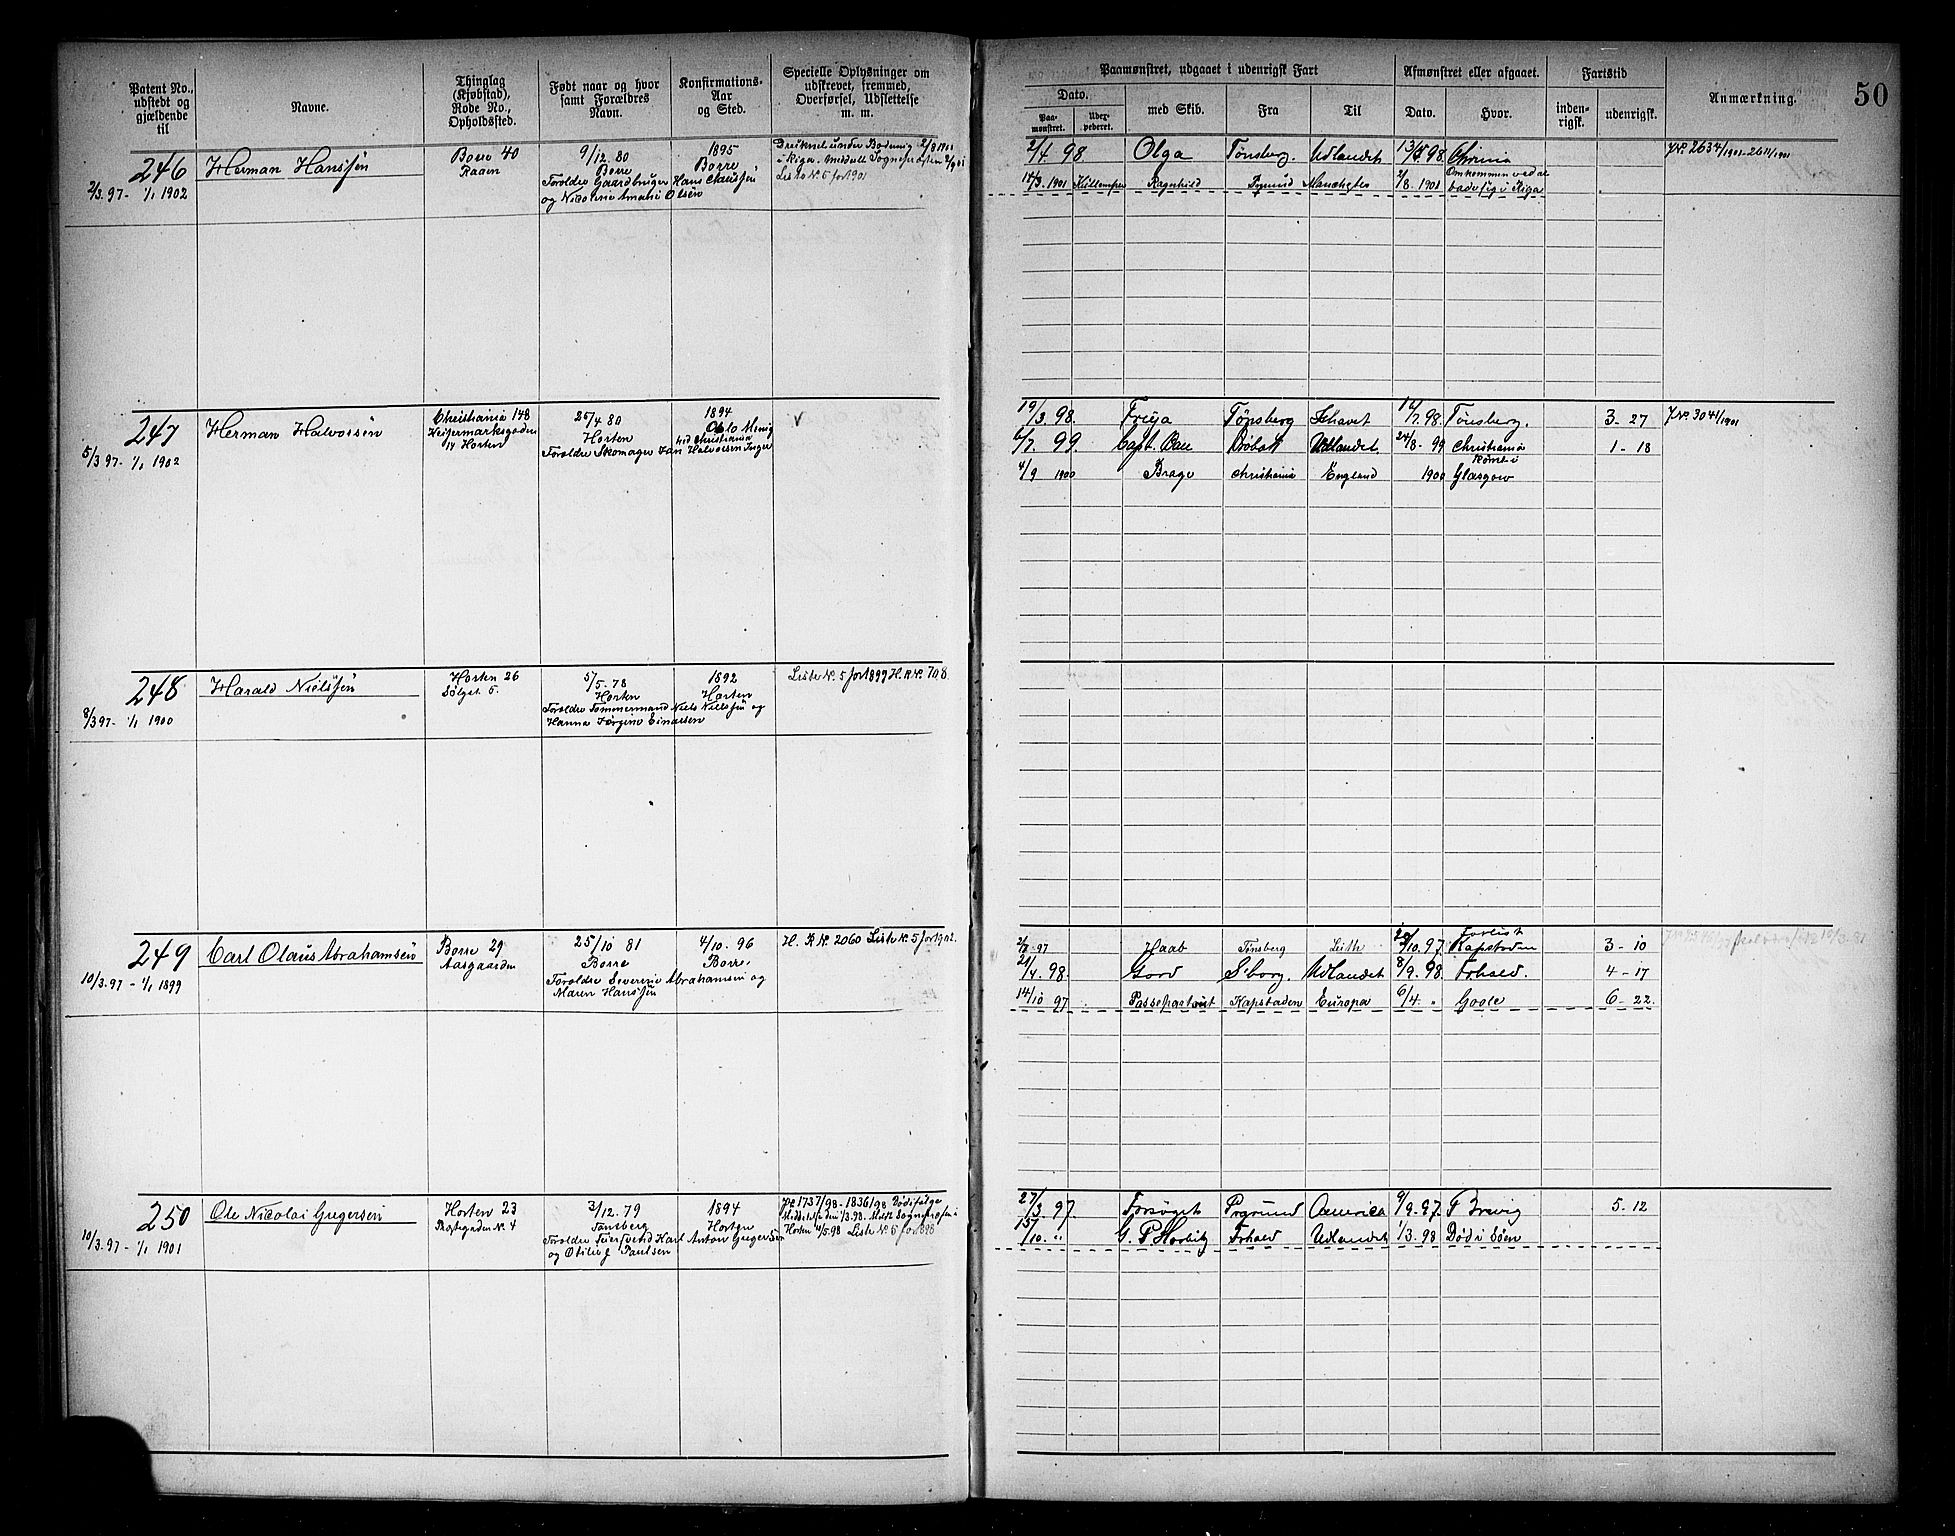 Patent No., udstedt og gjældende til
Navne.
Thinglag (Kjøbstad), Rode No., Opholdssted.
Født naar og hvor samt Forældres Navn.
Konfirmations-Aar og Sted.
Specielle Oplysninger om udskrevet, fremmed, Overførsel, Udslettelse m. m.
Paamønstret, udgaaet i udenrigsk Fart
Dato.
Paamønstret.
Uderpederet.
med Skib.
Fra
Til
Afmønstret eller afgaaet.
Dato.
Hvor.
Fartstid
indenrigsk.
udenrigsk.
Anmærkning.
50
246
2/3. 97 - 1/1 1902
Herman Hanssen
Borre 40
Raaen
9/12. 80
Borre
Foreldre Gaardbruger Hans Claussen
og Nicoline Amalie Olsen
1895
Borre
Druknet under Badning 2/8 1901
i Riga. Meddelt Sognepresten
Liste N. 5 for 1901
2/4 98 Olga Tønsberg. Udlandet 13/5 98 Chrinia
14/3. 1901 Ragnhild Manchester 2/8. 1901 Omkommen ved at
bade sig i Riga
J. N. 2634/1901 - 2611/1901
247
5/3 97 - 1/1 1902
Herman Halvorsen
Christiania 148
Keisermarksgaden
14 Horten
25/4 80
Horten
Foreldre Skomager Jan Halvorsen Inger
1894
Oslo Menig
ved Christiania
19/3. 98. Freya Tønsberg Ishavet 12/7. 98. Tønsberg. 3 - 27
6/7. 99. Capt. Drøbak Udlandet. 24/8 - 99 Christiania 1 - 18
4/9 1900 Brage Christiania England 1900 Rømt i
Glasgow
J. N. 3041/1901
248
8/3 97 - 1/1 1900
Harald Nielssen
Horten 26
5/5. 78
Horten
Foreldre Tømmermand Niels Nielssen og
Hanna Jørgine Einarsen
1892
Horten
Liste N. 5 for 1899 H. R. N. 708
249
10/3. 97 - 1/1 1899
Carl Olaus Abrahamsen
Borre 29
Aasgaarden
25/10 81
Borre
Foreldre Severine Abrahamsen og
Maren Hanssen
4/10. 96
Borre.
H. R. N. 2060 Liste N. 5 for 1902.
2/7 97 Haab Tønsberg Leith 20/10. 97. Forlist
Kapstaden 3 - 10
21/4. 98. Gord S'borg. Udlandet 8/9. 98. Frhald. 4 - 17
14/10 97 Passepartout Kapstaden Europa 6/4. " Goole 6 - 22.
250
10/3. 97 - 1/1 1901
Ole Nicolai Gregersen
Horten 23
N. 4
3/12. 79
Tønsberg
Foreldre Karl Anton Gregersen
og Otilie J. Paulsen
1894
Horten
J. N. 1737/98 - 1836/98 Død ifølge
Meddelelse 1/3. 98. Medt. Sognepresten i
Horten 4/5. 98 Liste N. 5 for 1898
27/3 97. Forsøget Prgrund America 9/9. 97. F. Brevig 5 - 12
15/10. " G. P. Harbitz Frhald Udlandet 1/3. 98 Død i Søen